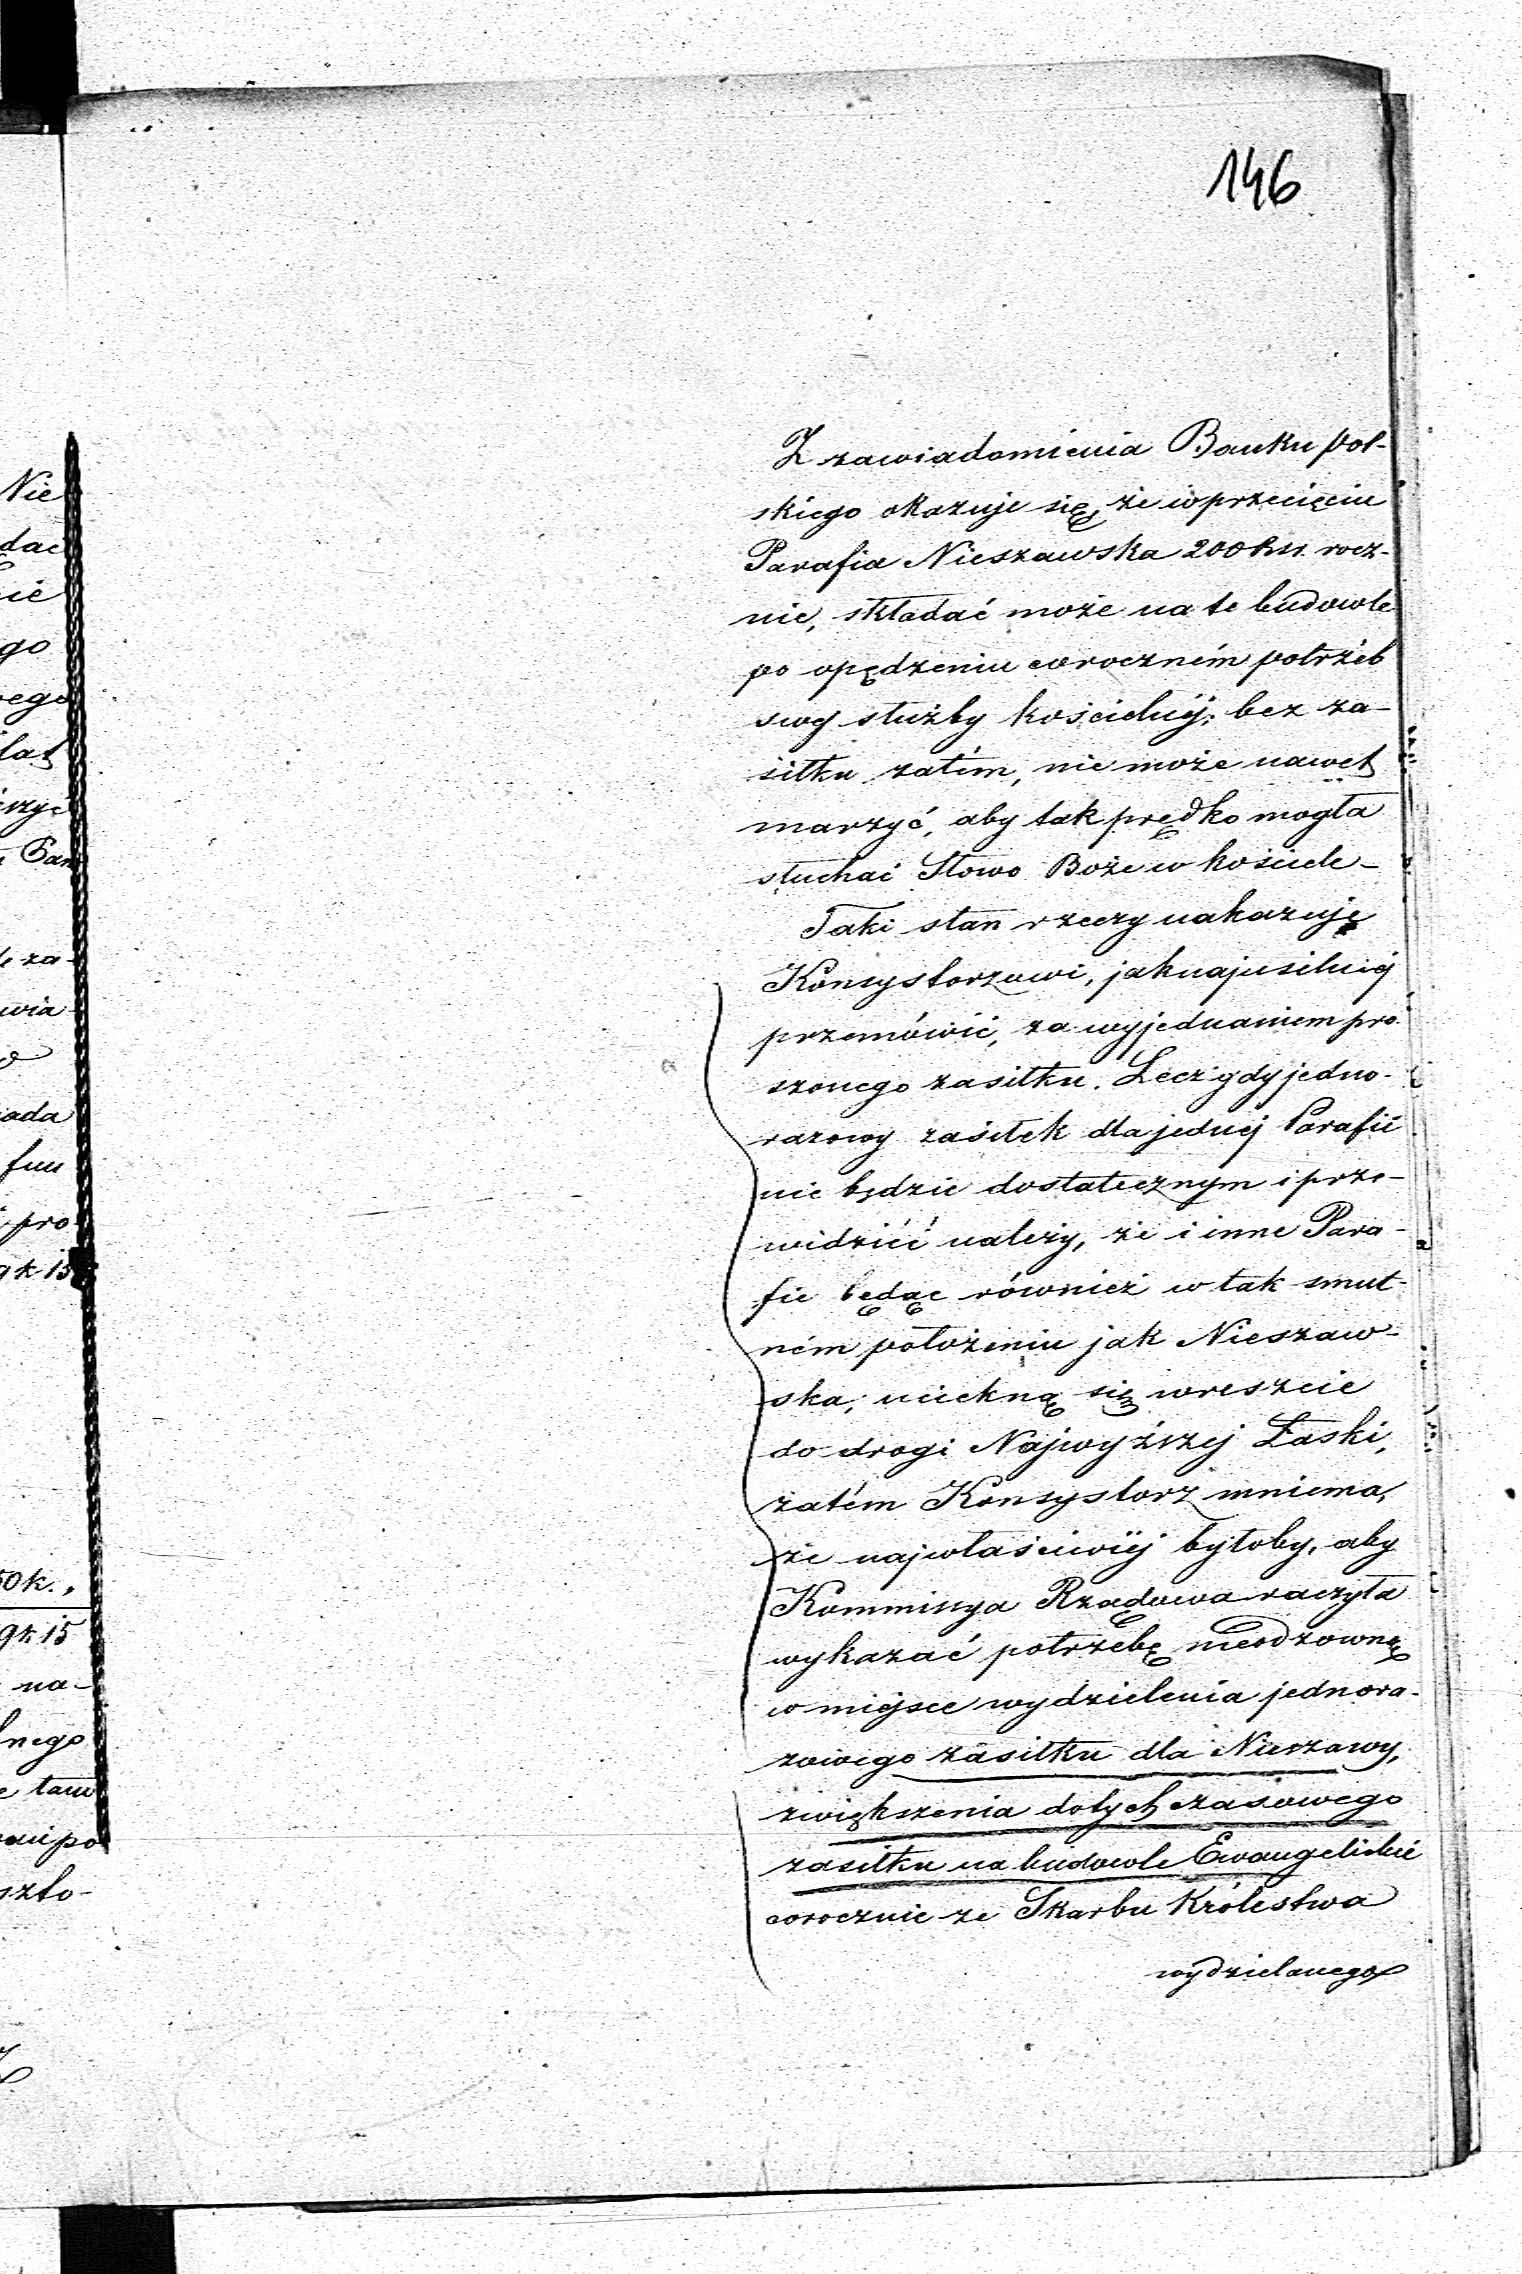 146
Z zawiadomienia Banku Pol-
skiego okazuje się, że w przecięciu
Parafia Nieszawska 200 Rsr. rocz-
nie, składać może na te budowle
po opędzeniu coroczném potrzeb
swej służby kościelnéj; bez za-
siłku zatém, nie może nawet
marzyć, aby tak prędko mogła
słuchać Słowo Boże w kościele_
Taki stan rzeczy nakazuje
Konsystorzowi, jak najusilniéj
przemówić, za wyjednaniem pro
szonego zasiłku. Lecz gdy jedno-
razowy zasiłek dla jednéj Parafii
nie będzie dostatecznym i prze-
widziéć należy, że i inne Para-
fie będąc również w tak smut-
ném położeniu jak Nieszaw-
ska, uciekną się wreszcie
do drogi Najwyższej Łaski,
zatém Konsystorz mniema,
że najwłaściwiéj byłoby, aby
Kommissya Rządowa raczyła
wykazać potrzebę nieodzowną
w miejsce wydzielenia jednora-
zowego zasiłku dla Nieszawy,
zwiększenia dotychczasowego
zasiłku na budowle Ewangelickie
corocznie ze Skarbu Królestwa
wydzielanego
Nie
dać
go
lat
za-
wia
ada
fun
pro
50k.,
9k 15
na-
lnego
tam
szło-